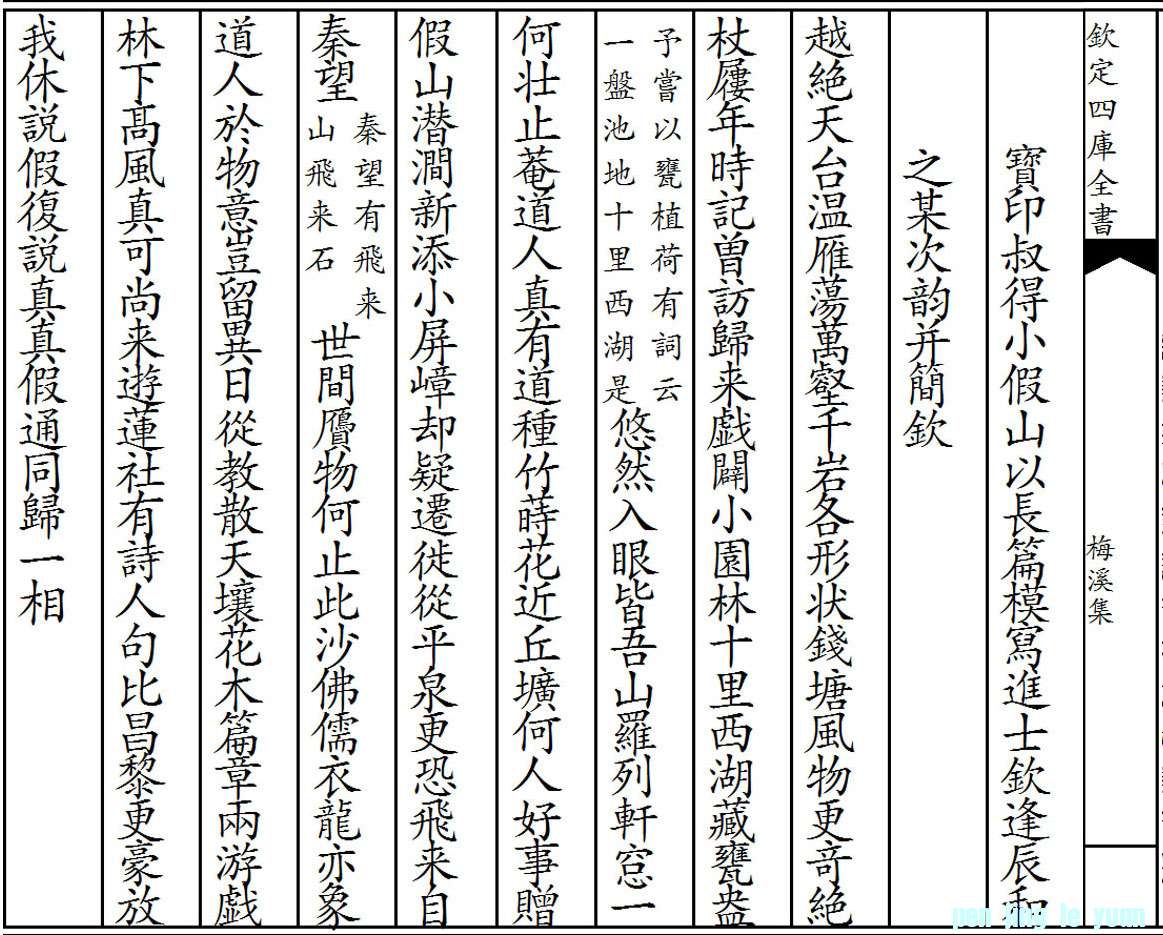 欽定四庫全書
梅溪集
寶印叔得小假山以長篇模寫進士欽逢辰和
之某次韵并簡欽
越絶天台温雁蕩萬壑千岩各形状錢塘風物更竒絶
杖屨年時記曽訪歸来戯闢小園林十里西湖藏甕盎
予嘗以甕植荷有詞云
一盤池地十里西湖是
悠然入眼皆吾山羅列軒窓一
何壮止菴道人真有道種竹蒔花近丘壙何人好事贈
假山潜澗新添小屏嶂却疑遷徙從平泉更恐飛来自
秦望
秦望有飛来
山飛来石
世間贋物何止此沙佛儒衣龍亦象
道人於物意豈留異日從教散天壤花木篇章兩游戯
林下髙風真可尚来遊蓮社有詩人句比昌黎更豪放
我休説假復説真真假通同歸一相
pen jing le yuan